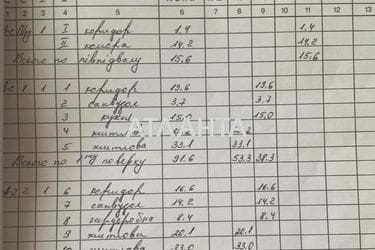 1 2 3 4 5 6 7 8 9 10 11 12 13
1 I коридор 1,4 1,4
II комора 14,2 14,2
Всього по півпідвалу 15,6 15,6
1 1 1 коридор 19,6 19,6
2 санвузол 3,7 3,7
3 кухня 15,0 15,0
4 житл
5 житлова 33,1 33,1
Всього по 1му поверху 91,6 53,3 38,3
2 1 6 коридор 16,6 16,6
7 санвузол 14,2 14,2
8 гардеробна 8,4 8,4
9 житлова 20,1 20,1
10 житлова 33,0 33,0
АТЛАНТА